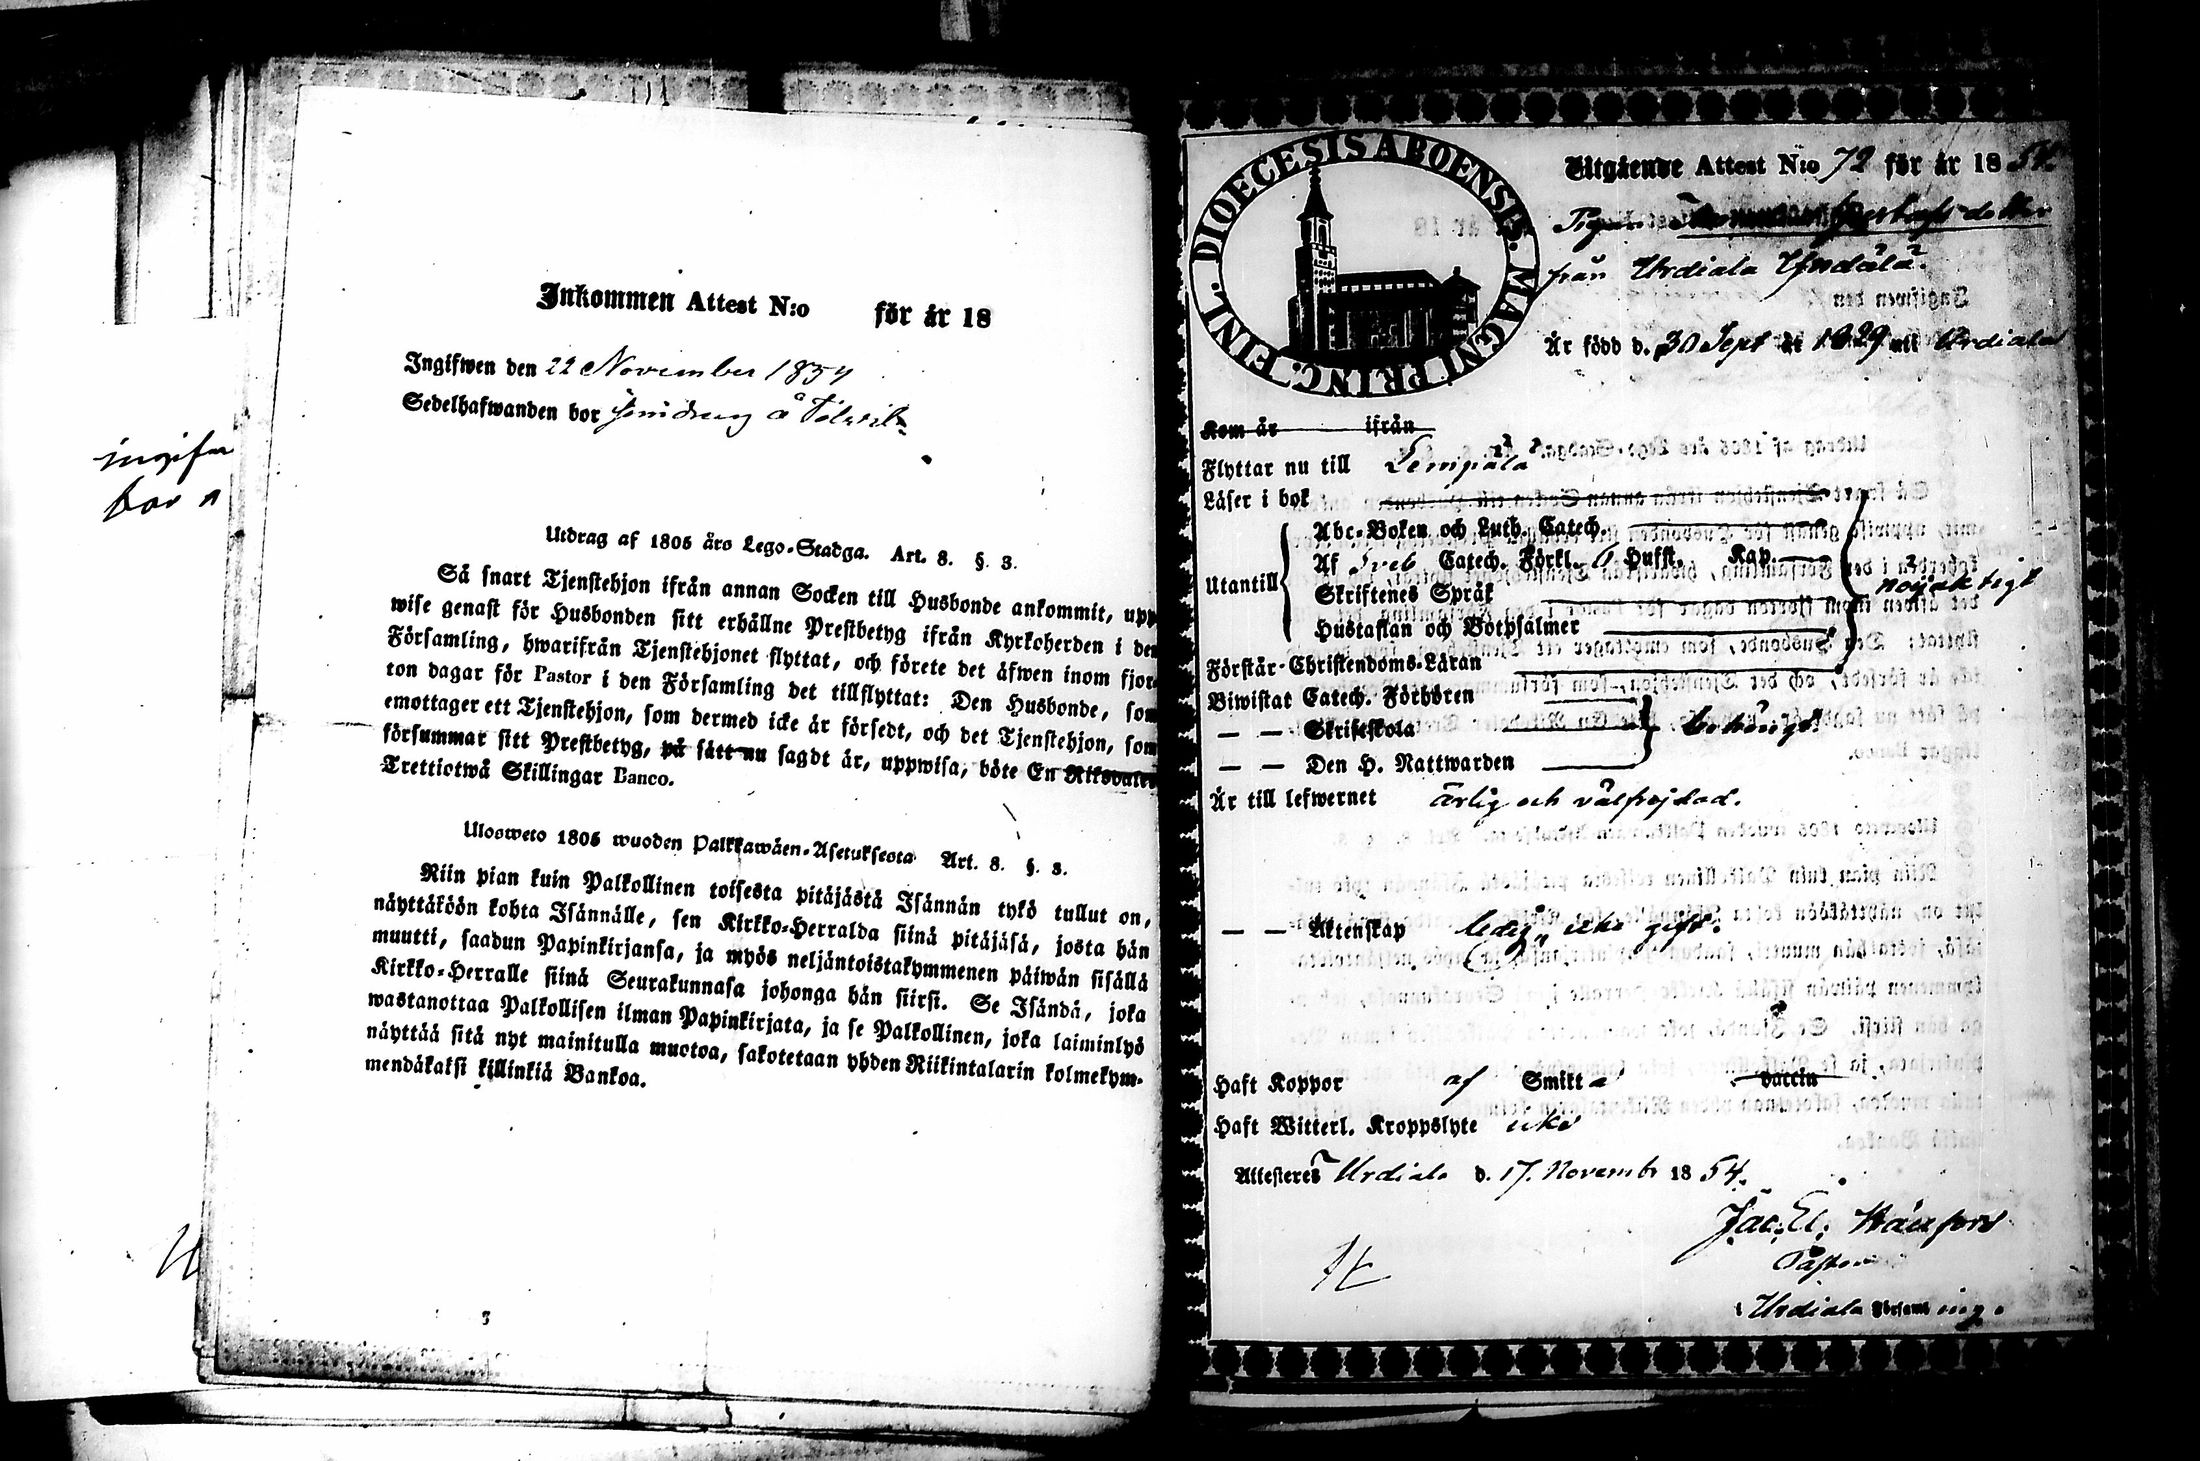 ingifw
bor
Inkommen Attest N:o för år 18
Ingifwen den 22 November 1854
Sedelhafwanden bor å
Utdrag af 1805 års Lego-Stadga. Art. 8. §. 3.
Så snart Tjenstehjon ifrån annan Socken till Husbonde ankommit, upp
wise genast för Husbonden sitt erhållne Prestbetyg ifrån Kyrkoherden i den
Församling, hwarifrån Tjenstehjonet flyttat, och förete det äfwen inom fjor-
ton dagar för Pastor i den Församling det tillflyttat: Den Husbonde, som
emottager ett Tjenstehjon, som dermed icke är försedt, och det Tjenstehjon, som
försummar sitt Prestbetyg, på sätt nu sagdt är, uppwisa, böte En Riksdaler
Trettiotwå Skillingar Banco.
Ulosweto 1805 wuoden Palkkawäen-Asetuksesta Art. 8. §. 3.
Niin pian kuin Palkollinen toisesta pitäjästä Isännän tykö tullut on,
näyttäköön kohta Isännälle, sen Kirkko-Herralda siinä pitäjäsä, josta hän
muutti, saadun Papinkirjansa, ja myös neljäntoistakymmenen päiwän sisällä
Kirkko-Herralle siinä Seurakunnasa johonga hän siirsi. Se Isändä, joka
wastanottaa Palkollisen ilman Papinkirjata, ja se Palkollinen, joka laiminlyö
näyttää sitä nyt mainitulla muotoa, sakotetaan yhden Riikintalarin kolmekym-
mendäkaksi killinkiä Bankoa.
DIOECESIS ABOENSIS. MAGNI PRINC. FINL.
Utgående Attest N:o 72 för år 1854.
Pigan dotter
från Urdiala
Är född d. 30 Sept år 1829 uti Urdiala
Kom år ifrån
Flyttar nu till Lempälä
Läser i bok
Abc-Boken och Luth. Catech.
Utantill Af Sveb Catech. Förkl. Hufst. Kap.
Skriftenes Språk
nöjaktigt
Hustaflan och Botpsalmer
Förstår Christendoms-Läran
Biwistat Catech. Förhören
— — Skriftskola behörigt
— — Den H. Nattwarden
Är till lefwernet ärlig och välfrejdad.
— — Äktenskap ledig, icke gift.
Haft Koppor af Smitta vaccin
Haft Witterl. Kroppslyte icke
Attesteres Urdiala d. 17. Novembr 1854.
Jac. El.
Pastor
i Urdiala Församling.